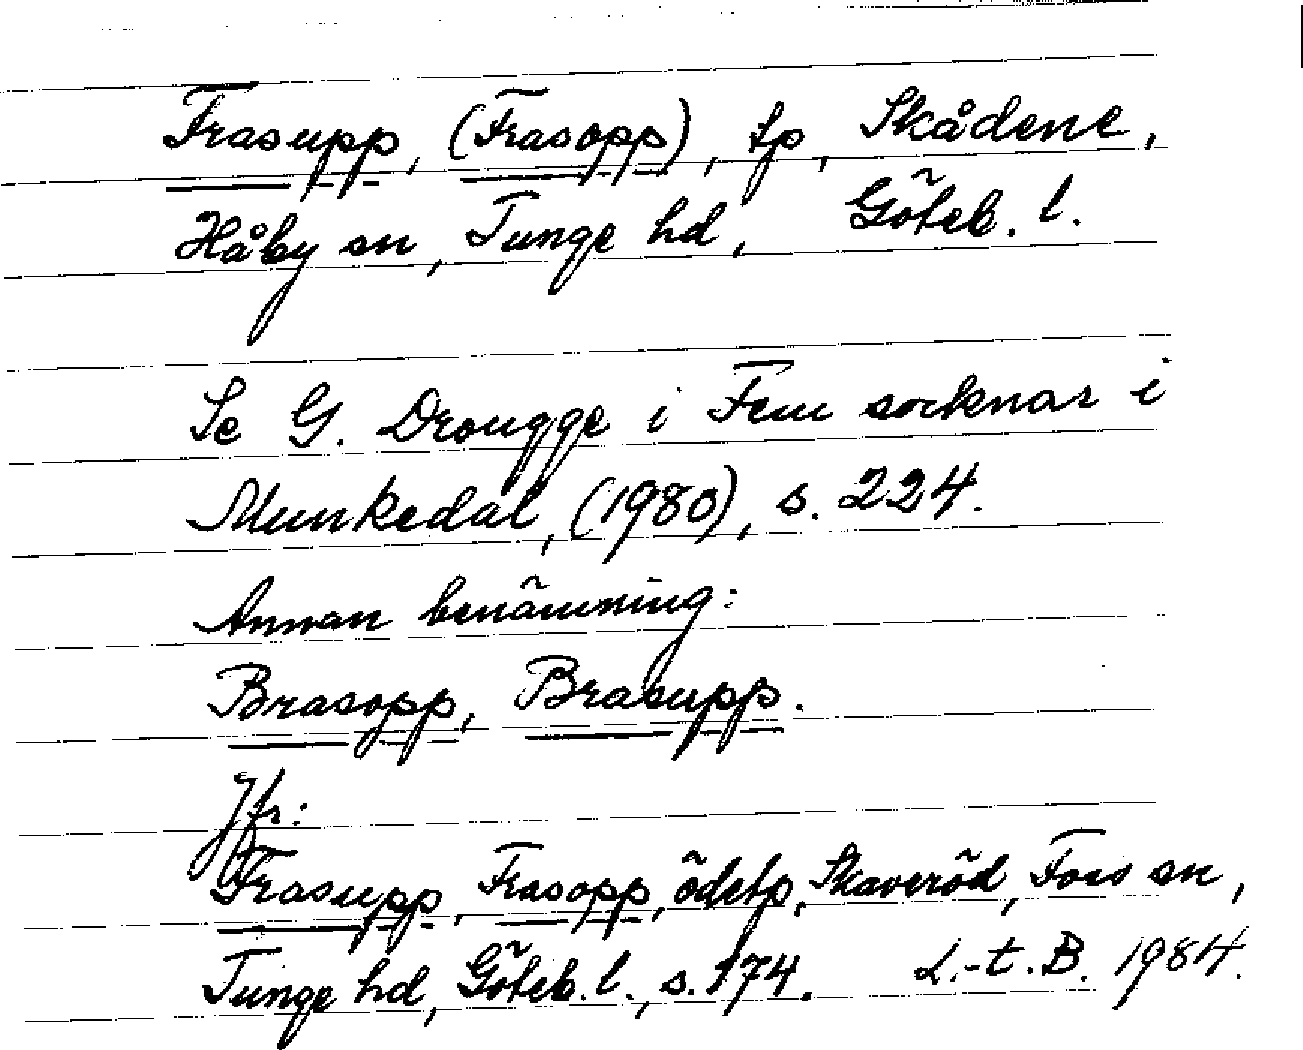 Frasupp, (Frasopp), tp, Skådene,
Håby sn, Tunge hd, Göteb. l.
Se G. Drougge i Fem socknar i
Munkedal, (1980), s. 224.
Annan benämning:
Brasopp, Brasupp.
Jfr:
Frasupp, Frasopp, ödetp, Skaveröd, Foss sn,
Tunge hd, Göteb. l., s. 174. L.-t. B. 1984.